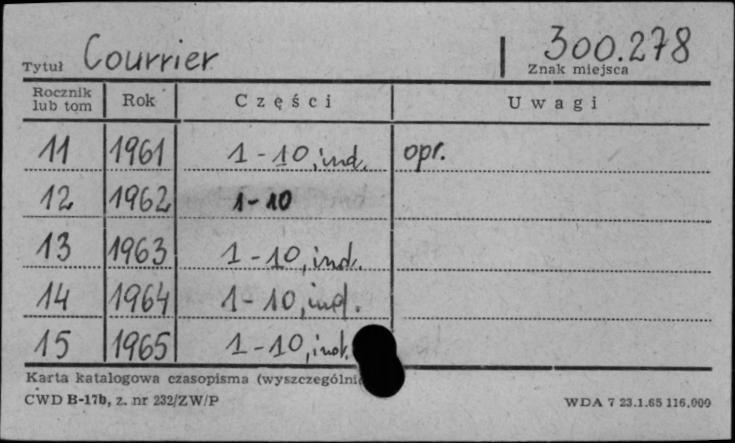 Tytuł Courrier 300.278
Znak miejsca
Rocznik lub tom Rok Części Uwagi
11 1961 1-10, ind. opr.
12 1962 1-10
13 1963 1-10, ind.
14 1964 1-10, ind.
15 1965 1-10, ind.
Karta katalogowa czasopisma
CWD B-17b, z. nr 232/ZW/P WDA 7 23.1.65 116.000